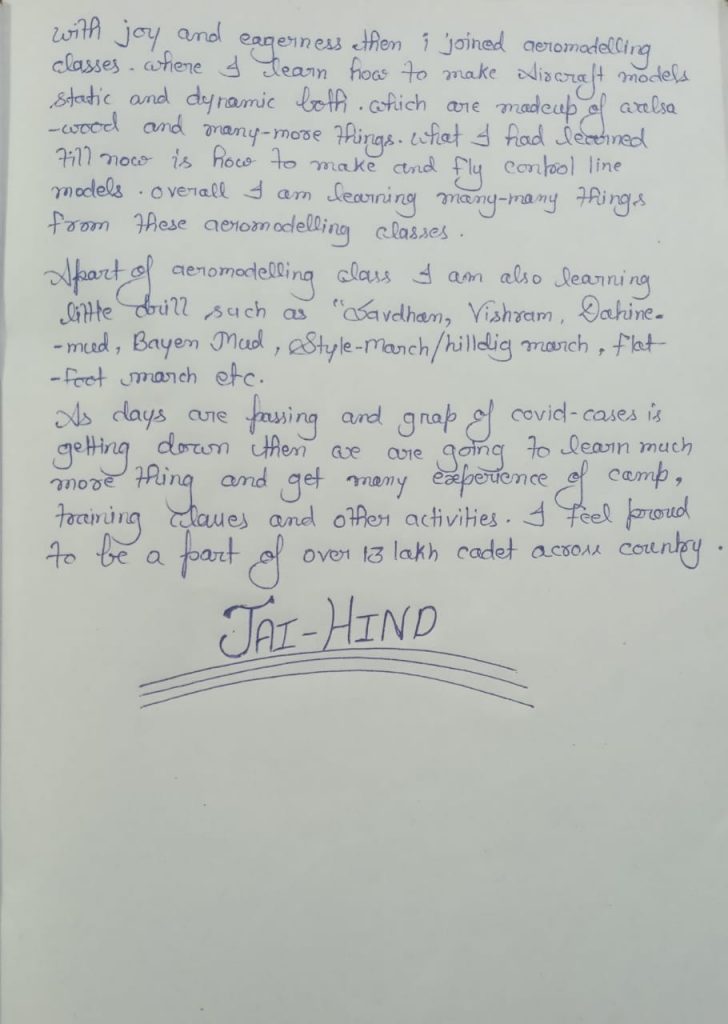 with joy and eagerness then i joined aeromodelling
classes. where I learn how to make Aircraft models
static and dynamic both. which are madeup of avalsa
-wood and many-more things. what I had learned
till now is how to make and fly control line
models. overall I am learning many-many things
from these aeromodelling classes.
Apart of aeromodelling class I am also learning
little drill such as "Savdhan, Vishram, Dahine-
-mud, Bayen Mud, Style-March/hilldig march, flat-
-foot march etc.
As days are passing and grap of covid-cases is
getting down then we are going to learn much
more thing and get many experience of camp,
training and other activities. I feel proud
to be a part of over 13 lakh cadet across country.
JAI-HIND